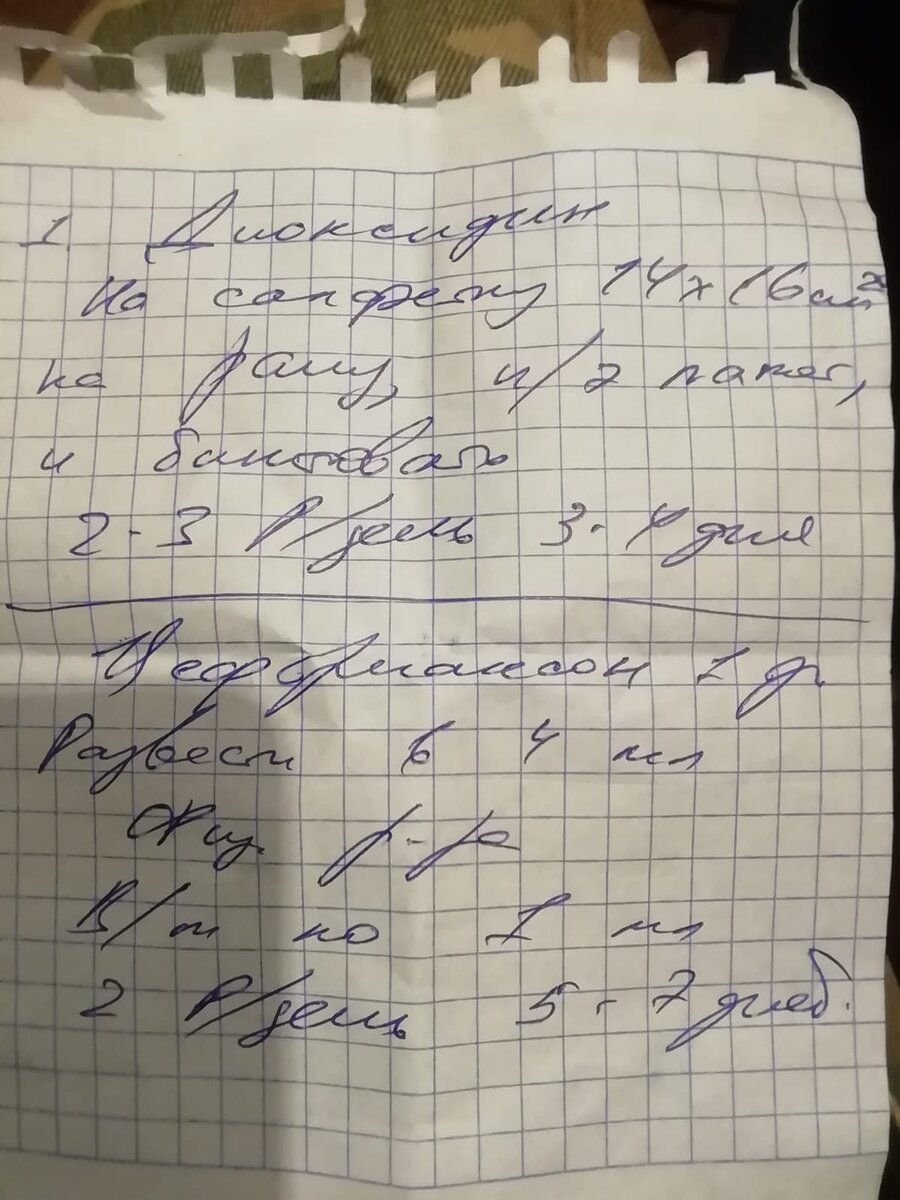 1. Диоксидин
На салфетку 14х16см²
на рану, п/э пакет,
и бинтовать
2-3 Р/день 3-4 дня
Цефтриаксон 1 гр.
Развести в 4 мл
Физ. р-ра
В/м по 1 мл
2 Р/день 5-7 дней.